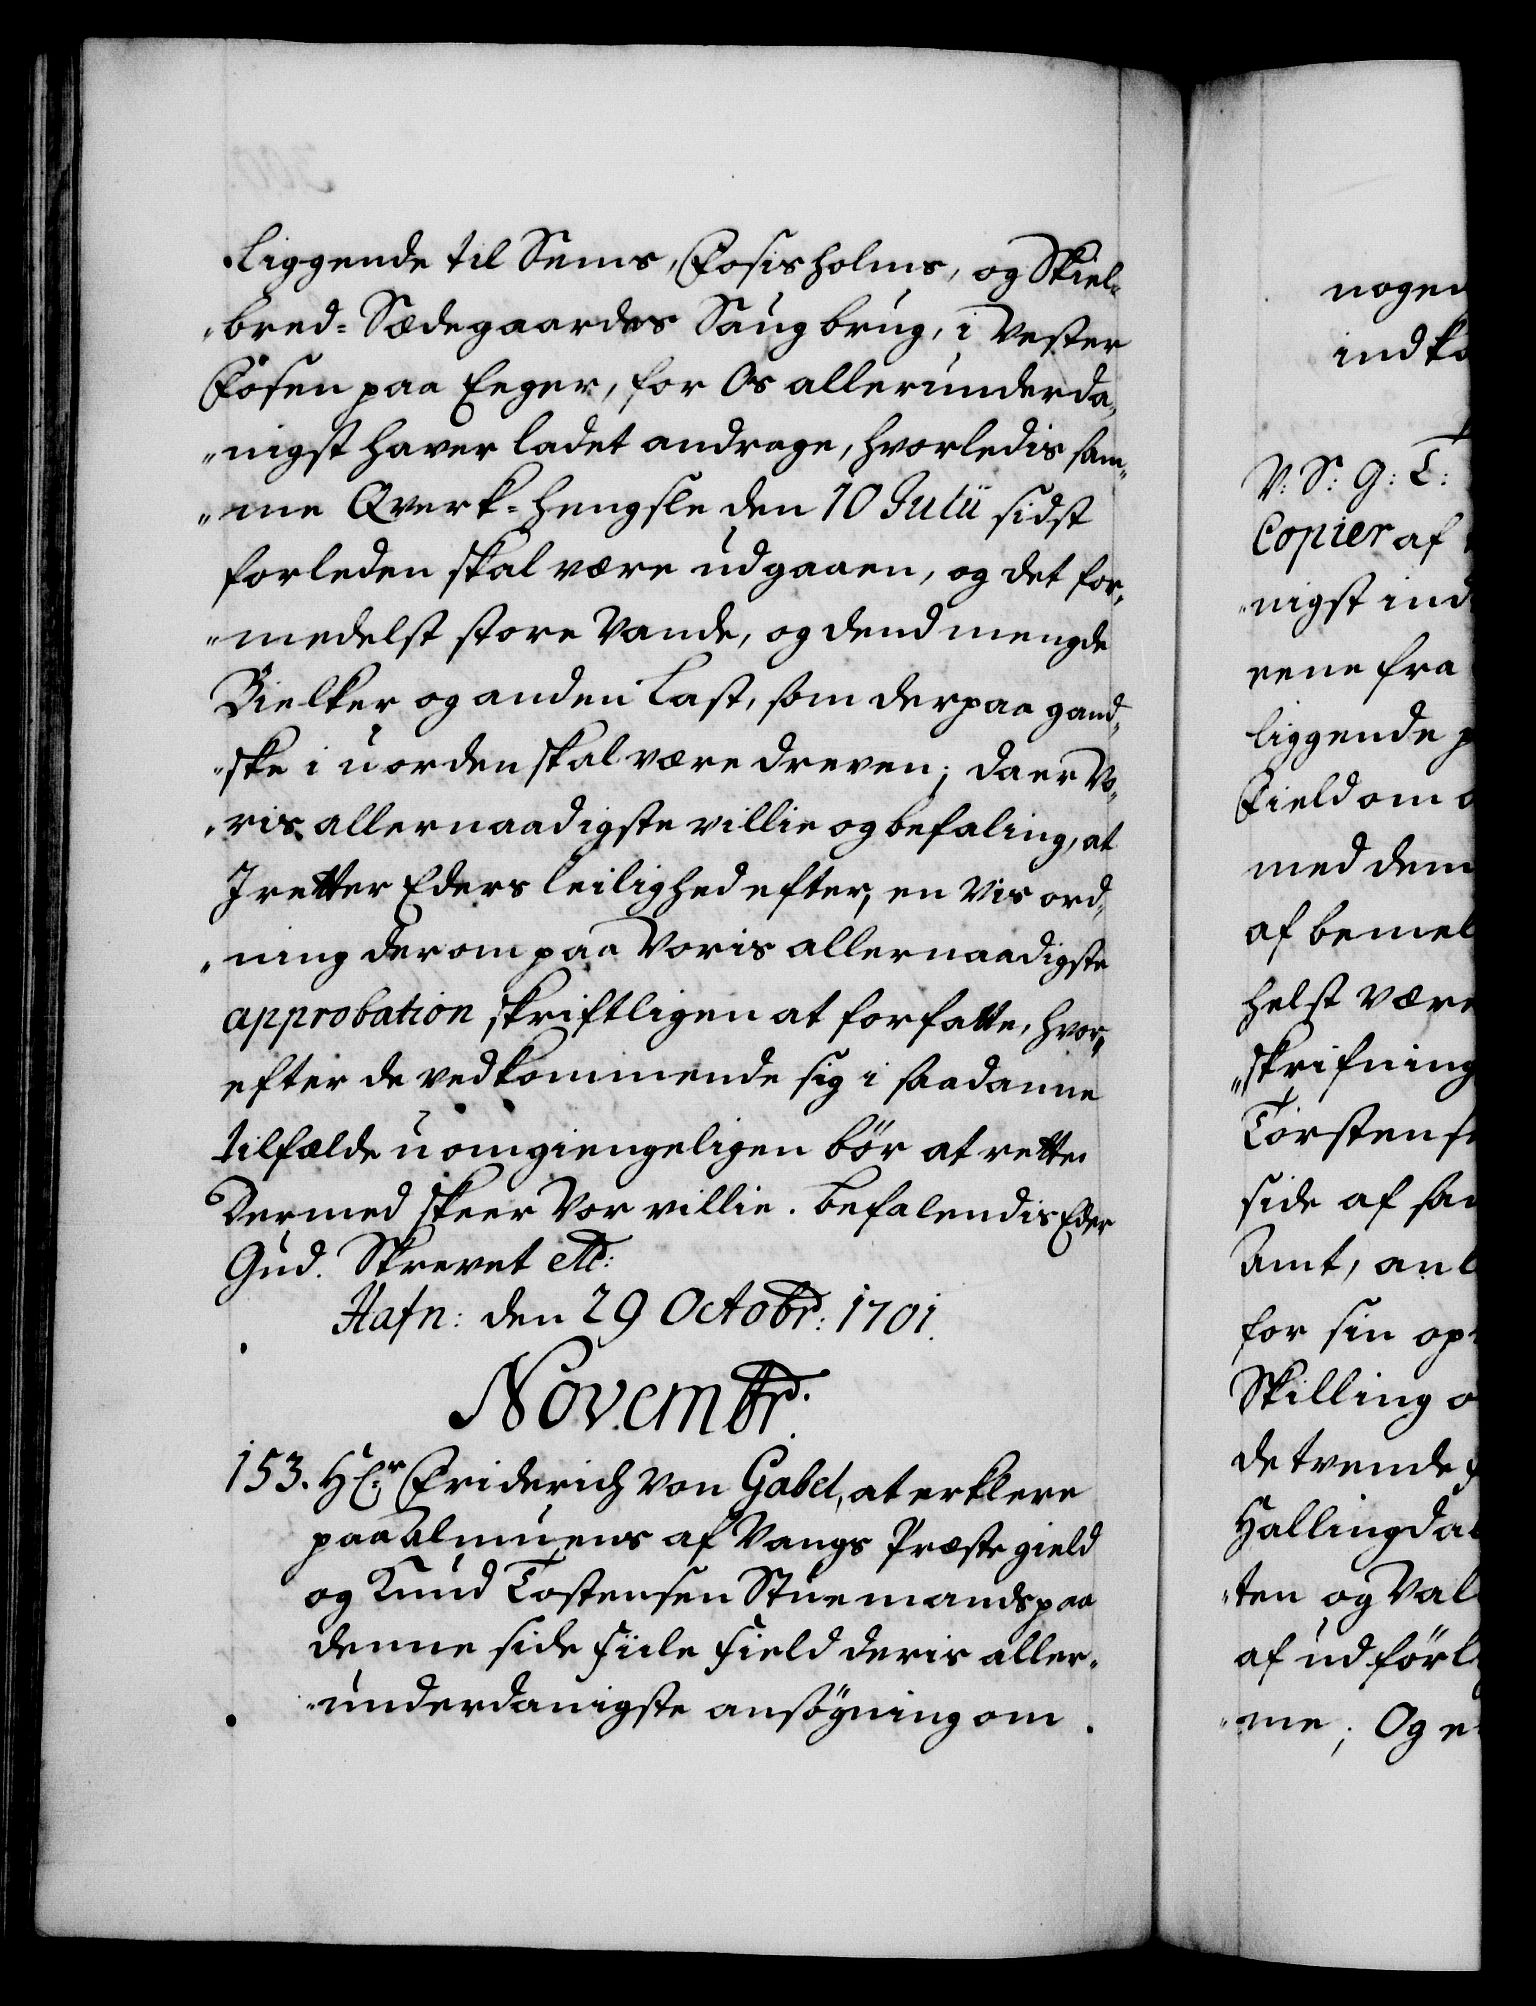 liggende til Sems, Fosisholms, og Skiel-
"bred- Sædegaardes Saugbrug, i Vester
Fosen paa Eeger, for Os allerunderda-
"nigst haver ladet andrage, hvorledis sam-
"me Qverk-hengsle den 10 Julii sidst
forleden skal være udgaaen, og det for-
"medelst store Vande, og dend mengde
Bielker og anden Last, som derpaa gand-
"ske i uorden skal være dreven; da er Vo-
"ris allernaadigste villie og befaling, at
I retter Eders leilighed efter, en Vis ord-
"ning derom paa Voris allernaadigste
approbation skriftligen at forfatte, hvor-
efter de vedkommende sig i saadanne
tilfælde uomgiengeligen bør at rette.
Dermed skeer Vor villie. Befalendis Eder
Gud. Skrevet etc:
Hafn: den 29 Octobr: 1701.
Novembr:
153. Hr: Friderich von Gabel, at erklere
paa Almuens af Vangs Præstegield
og Knud Tostensen Stuemands paa
denne side File Field deris aller-
"underdanigste ansøgning om
nogen
indko
V: S: G: T:
Copier af
"nigst ind
eene fra
liggende p
Field om o
med dem
af bemel
helst være
"skrifning
Torstens
side af sa
Amt, anl
for sin op
Skilling o
de tvende f
Hallingdal
"ten og Val
af udførl
"me; Og e